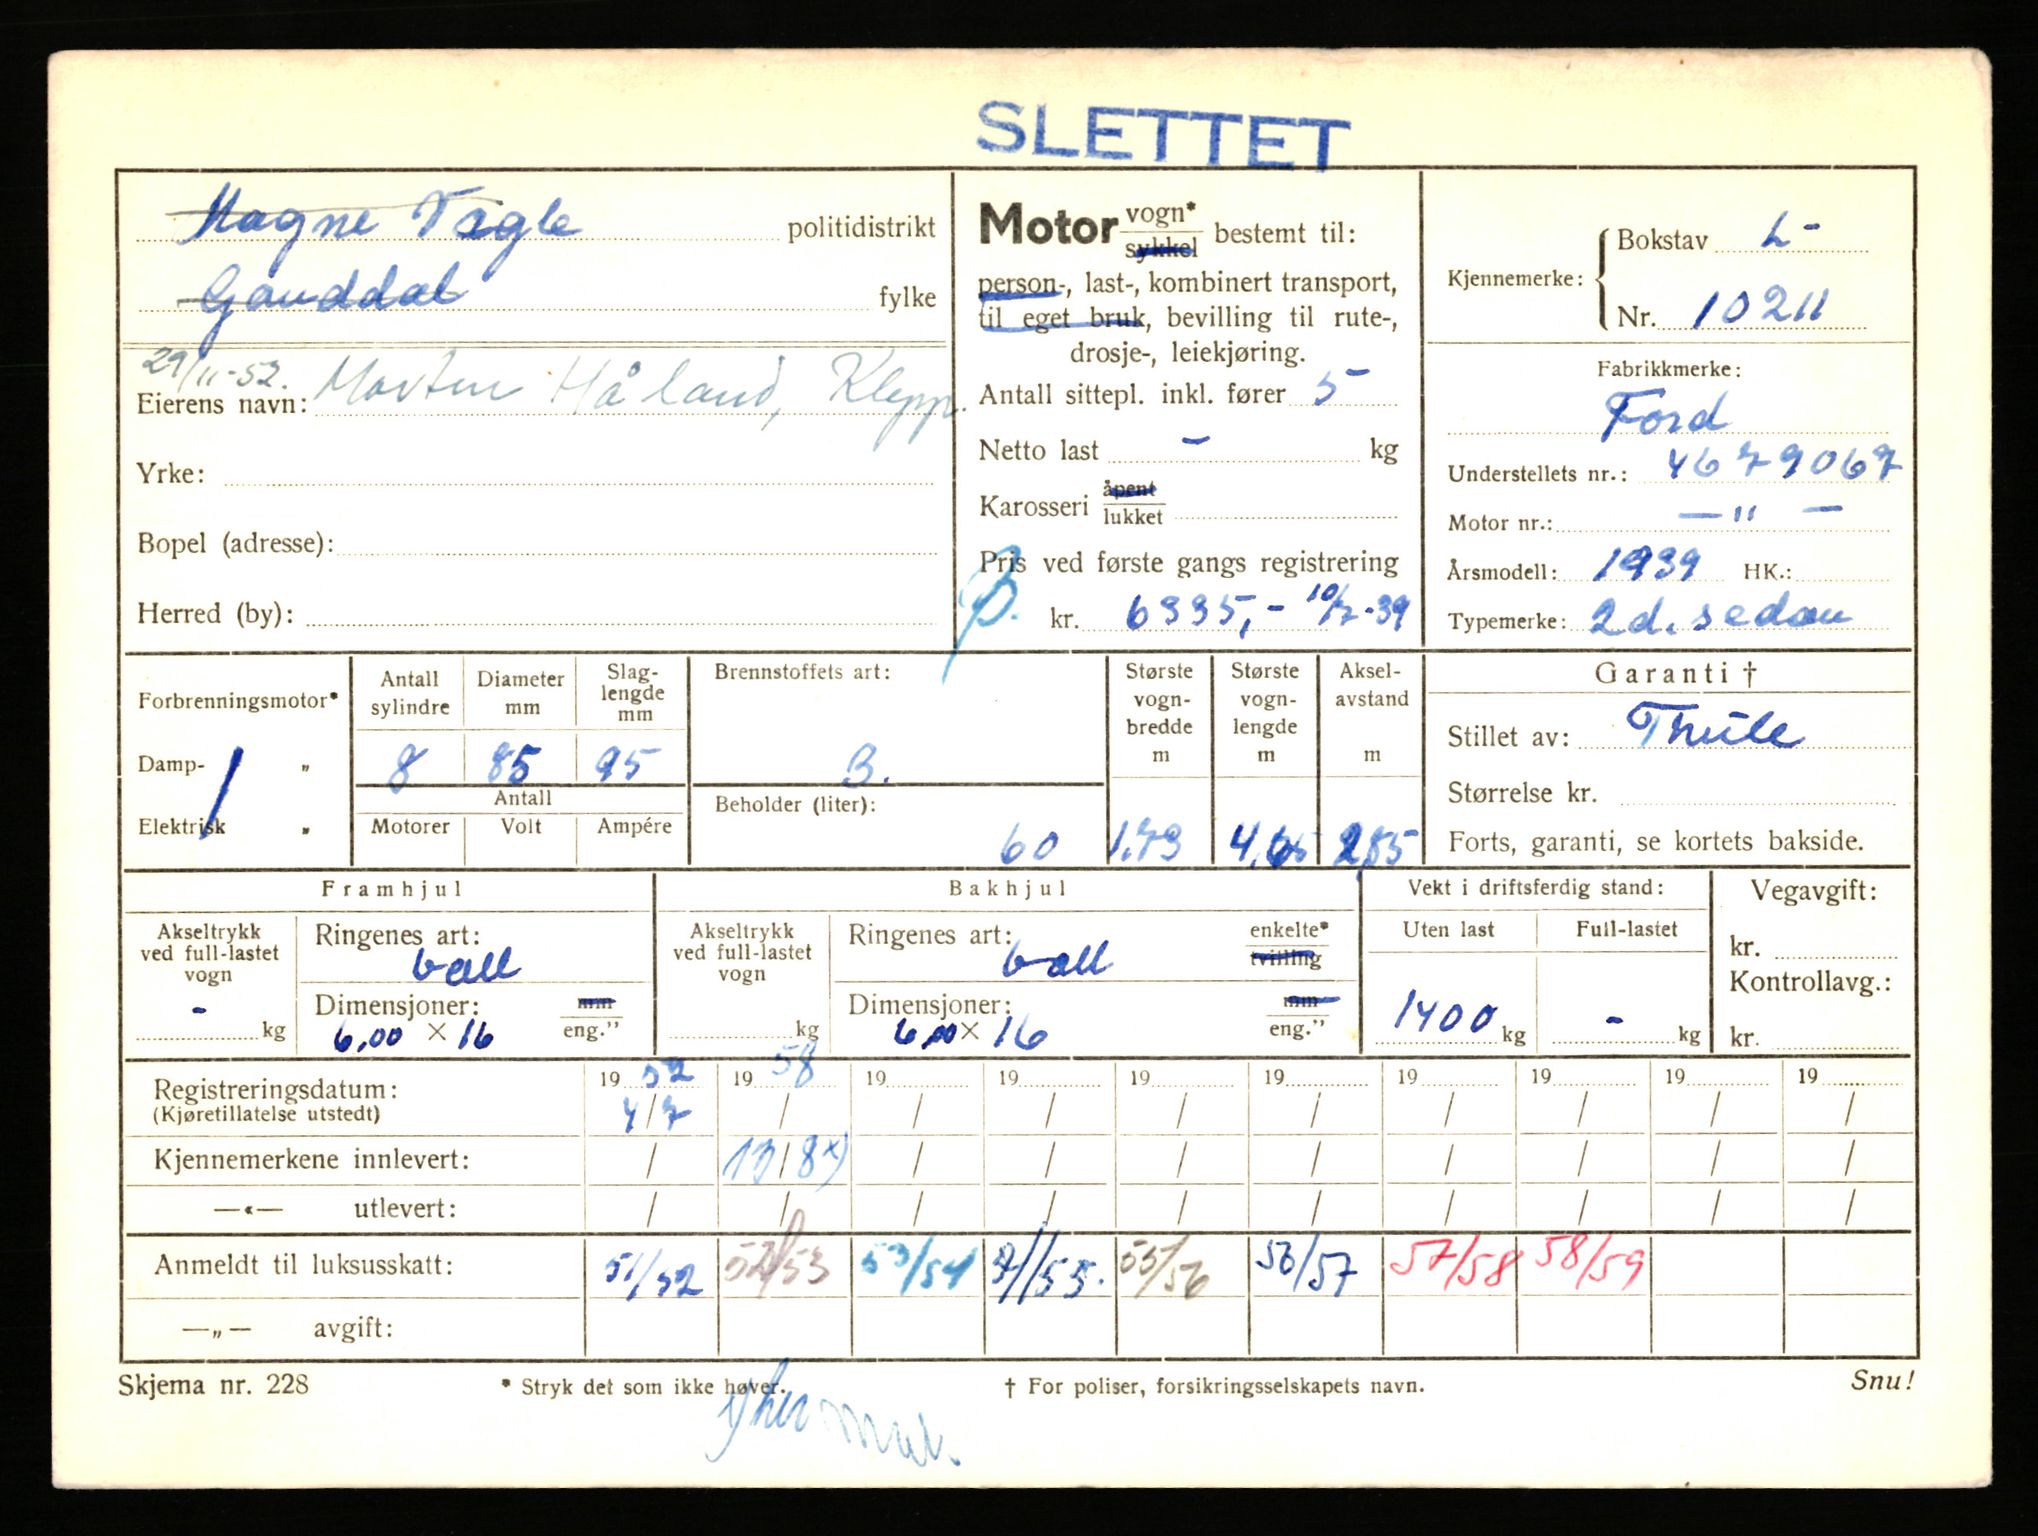 SLETTET
Magne Vagle politidistrikt
Ganddal fylke
29/11-52.
Eierens navn: Morten Håland, Klepp.
Yrke:
Bopel (adresse):
Herred (by):
Motor vogn* sykkel bestemt til:
person-, last-, kombinert transport,
til eget bruk, bevilling til rute-,
drosje-, leiekjøring.
Antall sittepl. inkl. fører 5
Netto last - kg
Karosseri åpent lukket
Pris ved første gangs registrering
kr. 6335,- 10/7-39
Kjennemerke: Bokstav L-
Nr. 10211
Fabrikkmerke:
Ford
Understellets nr.: 4679067
Motor nr.: — " —
Årsmodell: 1939 HK.:
Typemerke: 2d. sedan
Forbrenningsmotor*
Damp- „
Elektrisk „
Antall sylindre Diameter mm Slag-lengde mm
8 85 95
Antall
Motorer Volt Ampére
Brennstoffets art:
B.
Beholder (liter):
60
Største vogn-bredde m
1.73
Største vogn-lengde m
4,65
Aksel-avstand m
2,85
Garanti †
Stillet av: Thule
Størrelse kr.
Forts, garanti, se kortets bakside.
Framhjul
Akseltrykk ved full-lastet vogn
- kg
Ringenes art:
ball
Dimensjoner: mm
6,00 × 16 eng."
Bakhjul
Akseltrykk ved full-lastet vogn
kg
Ringenes art: enkelte*
ball tvilling
Dimensjoner: mm
6,00 × 16 eng."
Vekt i driftsferdig stand:
Uten last Full-lastet
1400 kg - kg
Vegavgift:
kr.
Kontrollavg.:
kr.
Registreringsdatum: 19 52 19 58 19 19 19 19 19 19 19 19
(Kjøretillatelse utstedt) 4/7 / / / / / / / / /
Kjennemerkene innlevert: / 13/8 x) / / / / / / / /
—«— utlevert: / / / / / / / / / /
Anmeldt til luksusskatt: 51/52 52/53 53/54 /55. 55/56 56/57 57/58 58/59
—„— avgift:
Skjema nr. 228 * Stryk det som ikke høver. † For poliser, forsikringsselskapets navn. Snu!